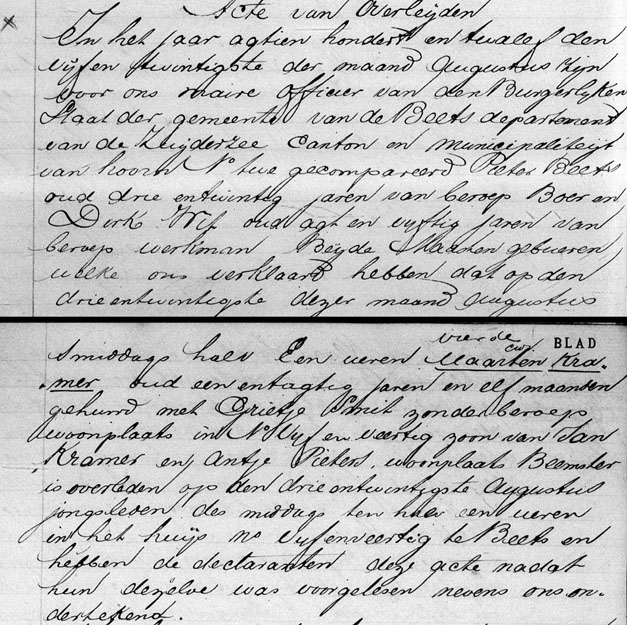 Acte van Overleijden
In het jaar agtien hondert en twaelf den
vijfen twintigste der maand Augustus zijn
voor ons maire officier van den Burgerlijken
Staat der gemeente van de Beets departement
van de Zuijderzee Canton en municipaliteijt
van hoorn N° twe gecompareerd Pieter Beets
oud drie entwintig jaren van beroep Boer en
Dirk Wit oud agt en vijftig jaren van
beroep werkman Beijde Maaten gebueren,
welke ons verklaard hebben dat op den
drieentwintigste dezer maand Augustus
vierde
BLAD
smiddags half Een ueren Maarten Kra-
mer oud een entagtig jaren en elf maanden
gehuwd met Grietje Smit zonder beroep
woonplaats in N° Vijf en veertig zoon van Jan
Kramer en Antje Pieters, woonplaats Beemster
is overleden op den drie entwintigste Augustus
jongsleden des middags ten half een ueren
in het huijs no vijfenveertig te Beets en
hebben de declaranten deze acte nadat
hun dezelve was voorgelesen nevens ons on-
dertekend.